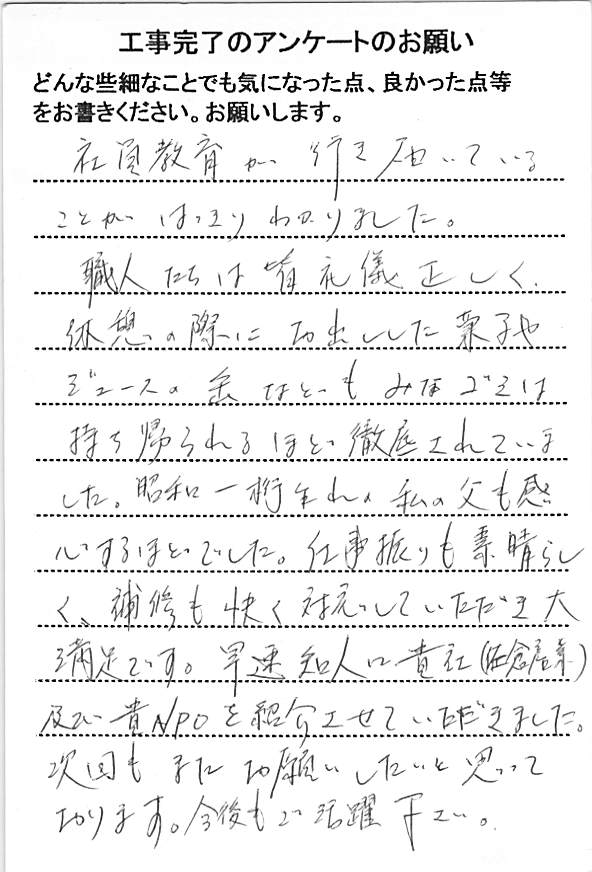 工事完了のアンケートのお願い
どんな些細なことでも気になった点、良かった点等
をお書きください。お願いします。
社員教育が行き届いている
ことがはっきりわかりました。
職人たちは皆礼儀正しく、
休憩の際にお出しした菓子や
ジュースの缶などもみなゴミは
持ち帰られるほど徹底されていま
した。昭和一桁生れの私の父も感
心するほどでした。仕事振りも素晴らし
く、補修も快く対応していただき大
満足です。早速知人に貴社(佐倉産業)
及び貴NPOを紹介させていただきました。
次回もまたお願いしたいと思って
おります。今後もご活躍下さい。